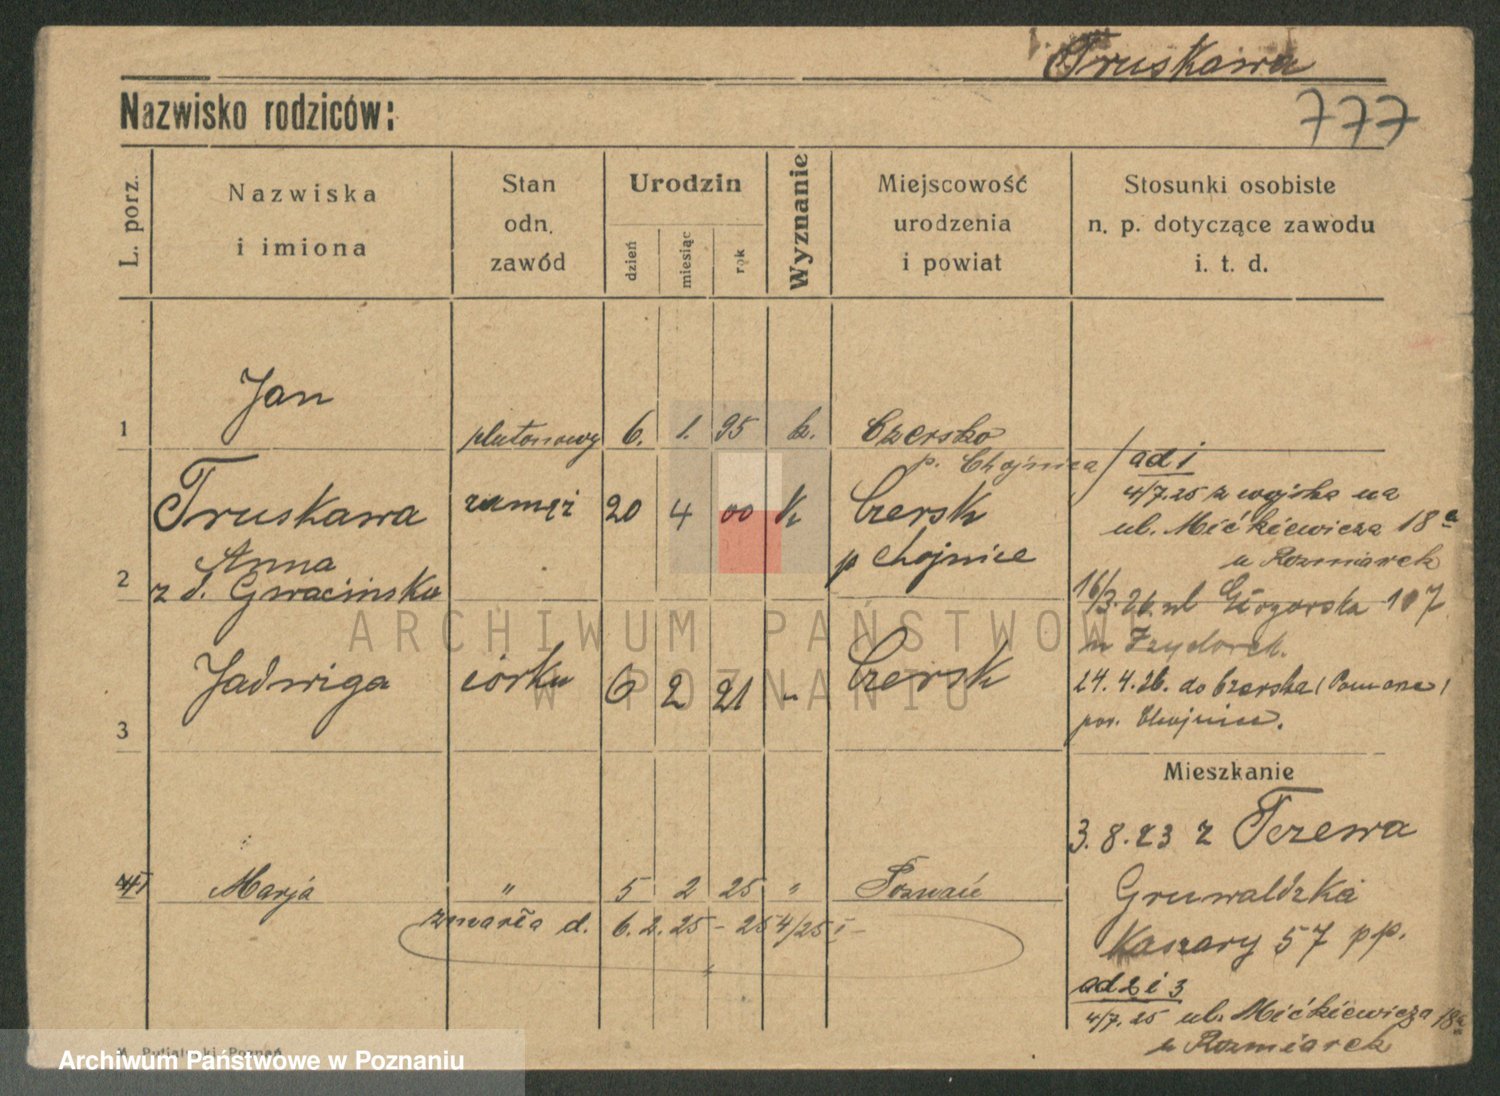 Truskawa
Nazwisko rodziców:
777
L. porz.
Nazwiska
i imiona
Stan
odn.
zawód
Urodzin
dzień
miesiąc
rok
Wyznanie
Miejscowość
urodzenia
i powiat
Stosunki osobiste
n. p. dotyczące zawodu
i. t. d.
1
Jan
plutonowy 6. 1. 95 k. Czersko
p. Chojnice
Truskawa zamęż 20 4 00 k Czersk
Anna
p Chojnice
2
z d.
ad 1
4/7.25 z wojska na
ul. Mićkiewicza 18a
u Rozmiarek
16/3.26. ul 107
u
24.4.26. do Czerska (Pomorze)
pow. Chojnice.
Jadwiga córka 6 2 21 - Czersk
3
4 Marja " 5 2 25 " Poznań
zmarła d. 6. 2. 25 - 254/25 I -
Mieszkanie
3. 8. 23 z Tczewa
Grunwaldzka
Kaszary 57 pp.
ad 2 i 3
4/7. 25 ul. Mićkiewicza 18a
u Rozmiarek
ARCHIWUM PAŃSTWOWE
W POZNANIU
Archiwum Państwowe w Poznaniu